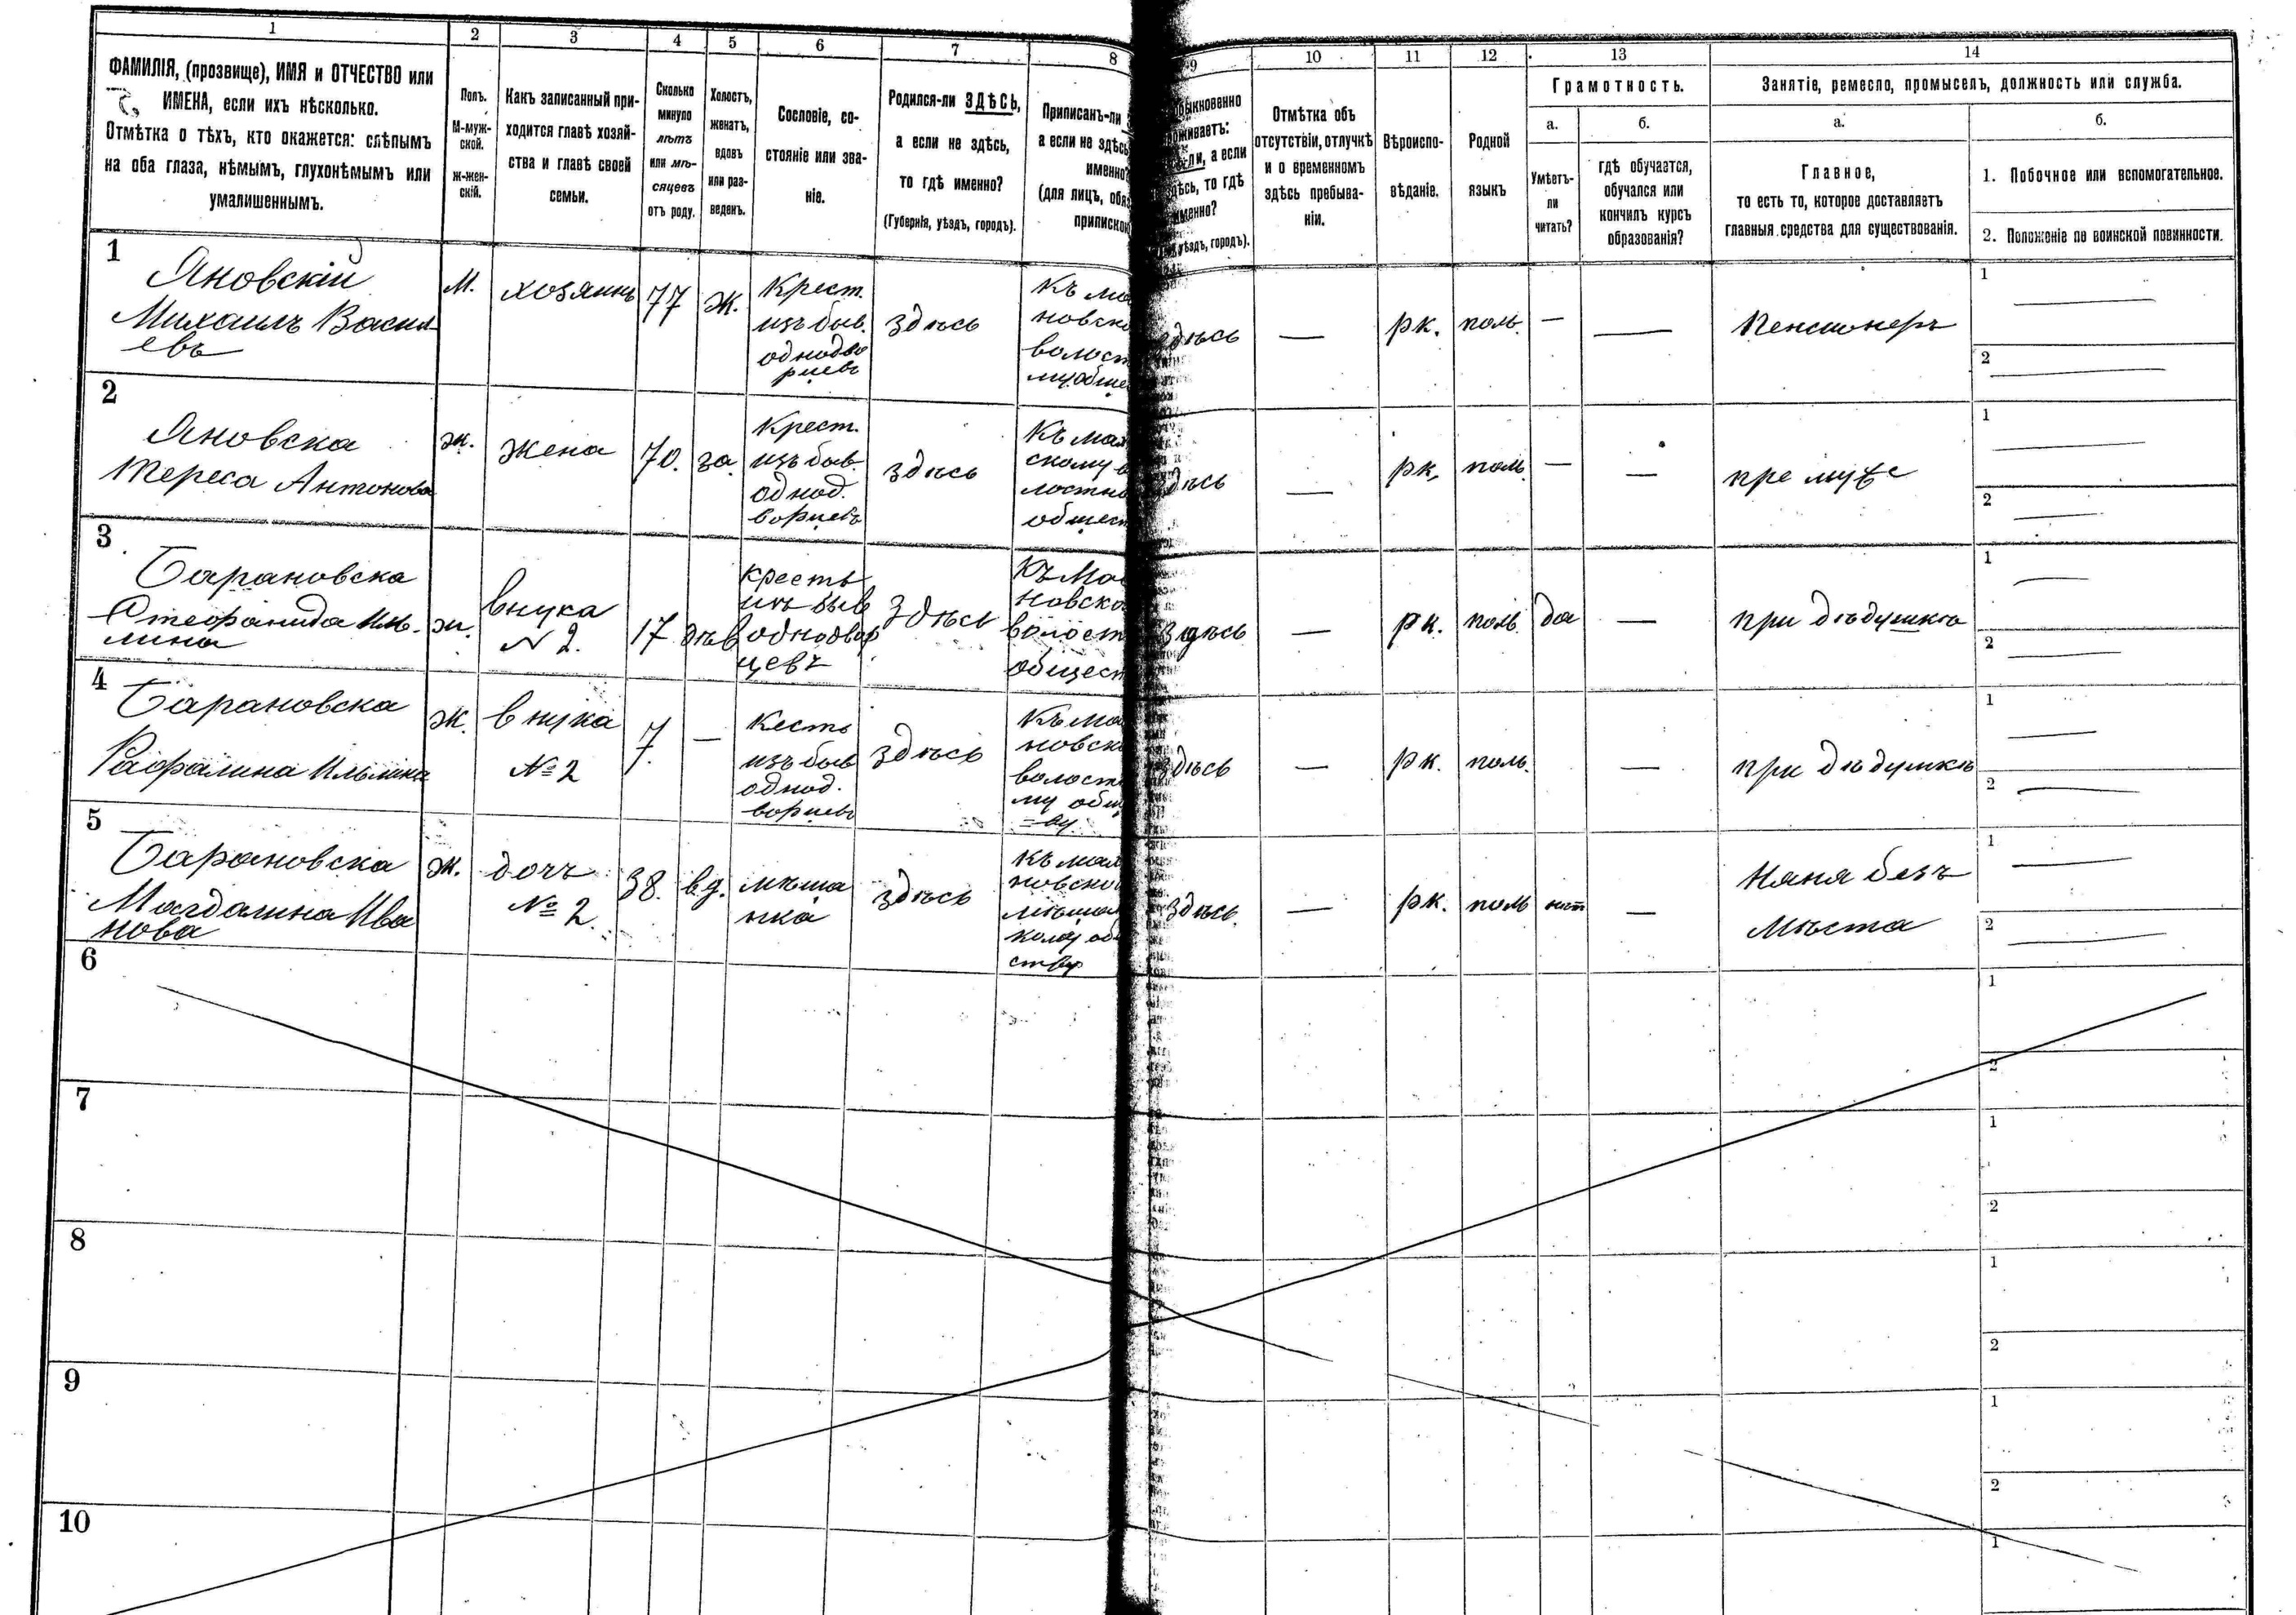 1 2 3 4 5 6 7 8 9 10 11 12 13 14
ФАМИЛІЯ, (прозвище), ИМЯ и ОТЧЕСТВО или
ИМЕНА, если ихъ нѣсколько.
Отмѣтка о тѣхъ, кто окажется: слѣпымъ
на оба глаза, нѣмымъ, глухонѣмымъ или
умалишеннымъ.
Полъ.
М-муж-
ской.
ж-жен-
скій.
Какъ записанный при-
ходится главѣ хозяй-
ства и главѣ своей
семьи.
Сколько
минуло
лѣтъ
или мѣ-
сяцевъ
отъ роду.
Холостъ,
женатъ,
вдовъ
или раз-
веденъ.
Сословіе, со-
стояніе или зва-
ніе.
Родился-ли ЗДѢСЬ,
а если не здѣсь,
то гдѣ именно?
(Губернія, уѣздъ, городъ).
Приписанъ-ли
а если не здѣсь
именно?
(для лицъ, обя
припискою
быкновенно
оживаетъ:
ли, а если
дѣсь, то гдѣ
именно?
уѣздъ, городъ).
Отмѣтка объ
отсутствіи, отлучкѣ
и о временномъ
здѣсь пребыва-
ніи.
Вѣроиспо-
вѣданіе.
Родной
языкъ
Грамотность.
а.
Умѣетъ-
ли
читать?
б.
гдѣ обучается,
обучался или
кончилъ курсъ
образованія?
Занятіе, ремесло, промыселъ, должность или служба.
а.
Главное,
то есть то, которое доставляетъ
главныя средства для существованія.
б.
1. Побочное или вспомогательное.
2. Положеніе по воинской повинности.
1
Яновскій
Михаилъ Васил
евъ
М.
хозяинъ
77
Ж.
Крест.
изъ быв.
однодво
рцевъ
здѣсь
Къ ма
новско
волост
му обще
здѣсь
—
рк.
поль.
—
—
Пенсионеръ
1
2
2
Яновска
Тереса Антонова
ж.
жена
70.
за.
Крест.
изъ быв.
однод.
ворцевъ
здѣсь
Къ мал
скому в
лостно
общест
здѣсь
—
рк.
поль
—
—
пре муже
1
2
3
Барановска
Стефанида Иль-
лина
ж.
внука
N 2.
17
дѣв
кресть
изъ быв
однодвор
цевъ
здѣсь
Къ Ма
новско
волост
общест
здѣсь
—
рк.
поль
да
—
при дѣдушкѣ
1
2
4
Барановска
Рафалина Ильина
Ж.
внука
№ 2
7.
—
Кесть
изъ быв
однод.
ворцевъ
здѣсь
Къ ма
новск
волост
му общ
=ву
здѣсь
—
рк.
поль.
—
при дѣдушкѣ
1
2
5
Барановска
Магдалина Ива
нова
Ж.
дочъ
№ 2.
38.
вд.
мѣща
нка
здѣсь
Къ мал
новско
мѣщан
кому об
ству
здѣсь.
—
рк.
поль
нѣт
—
Няня безъ
мѣста
1
2
6
1
2
7
1
2
8
1
2
9
1
2
10
1